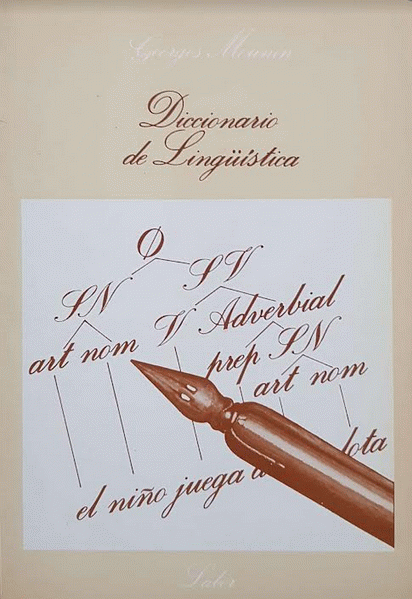 Georges Mounin
Diccionario
de Lingüística
O
SN SV
art nom V Adverbial
prep SN
art nom
el niño juega a lota
Labor